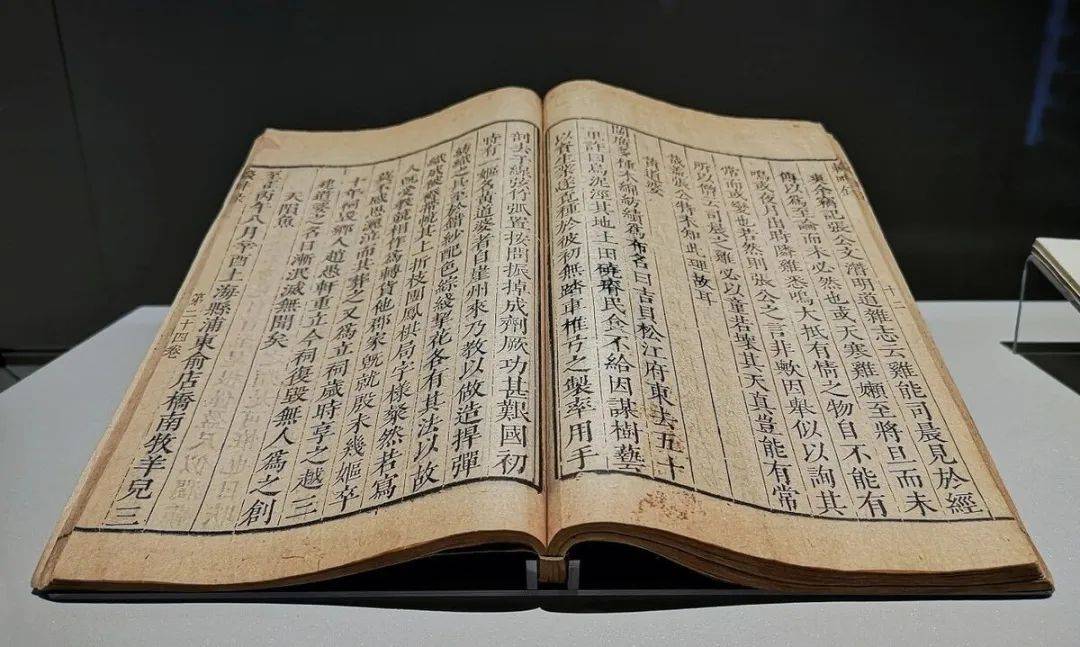 余嘗記張公文潛明道雜志云雞能司晨見於經
傳以為至論而未必然也或天寒雞懶至將旦而未
鳴或夜月出時隣雞悉鳴大抵有情之物自不能有
常而或變也若然則張公之言非歟因舉似以詢其
所以僧云司晨之雞必以童若壞其天真豈能有常
葢張公特未知此理故耳
黃道婆
閩廣多種木綿紡績為布名曰吉貝松江府東去五十
里許曰烏泥涇其地土田磽瘠民食不給因謀樹藝
以資生業遂覓種於彼初無踏車椎弓之製率用手
剖去子線弦竹弧置按間振掉成劑厥功甚艱國初
時有一嫗名黃道婆者自崖州來乃教以做造捍彈
紡織之具至於錯紗配色綜線挈花各有其法以故
織成被褥帶帨其上折枝團鳳棋局字樣粲然若寫
人既受教競相作為轉貨他郡家既就殷未幾嫗卒
莫不感恩洒泣而共葬之又為立祠歲時享之越三
十年祠毀鄉人趙愚軒重立今祠復毀無人為之創
建道婆之名日漸泯滅無聞矣
天隕魚
至正丙午八月辛酉上海縣浦東俞店橋南牧羊兒三
第二十四卷
十二